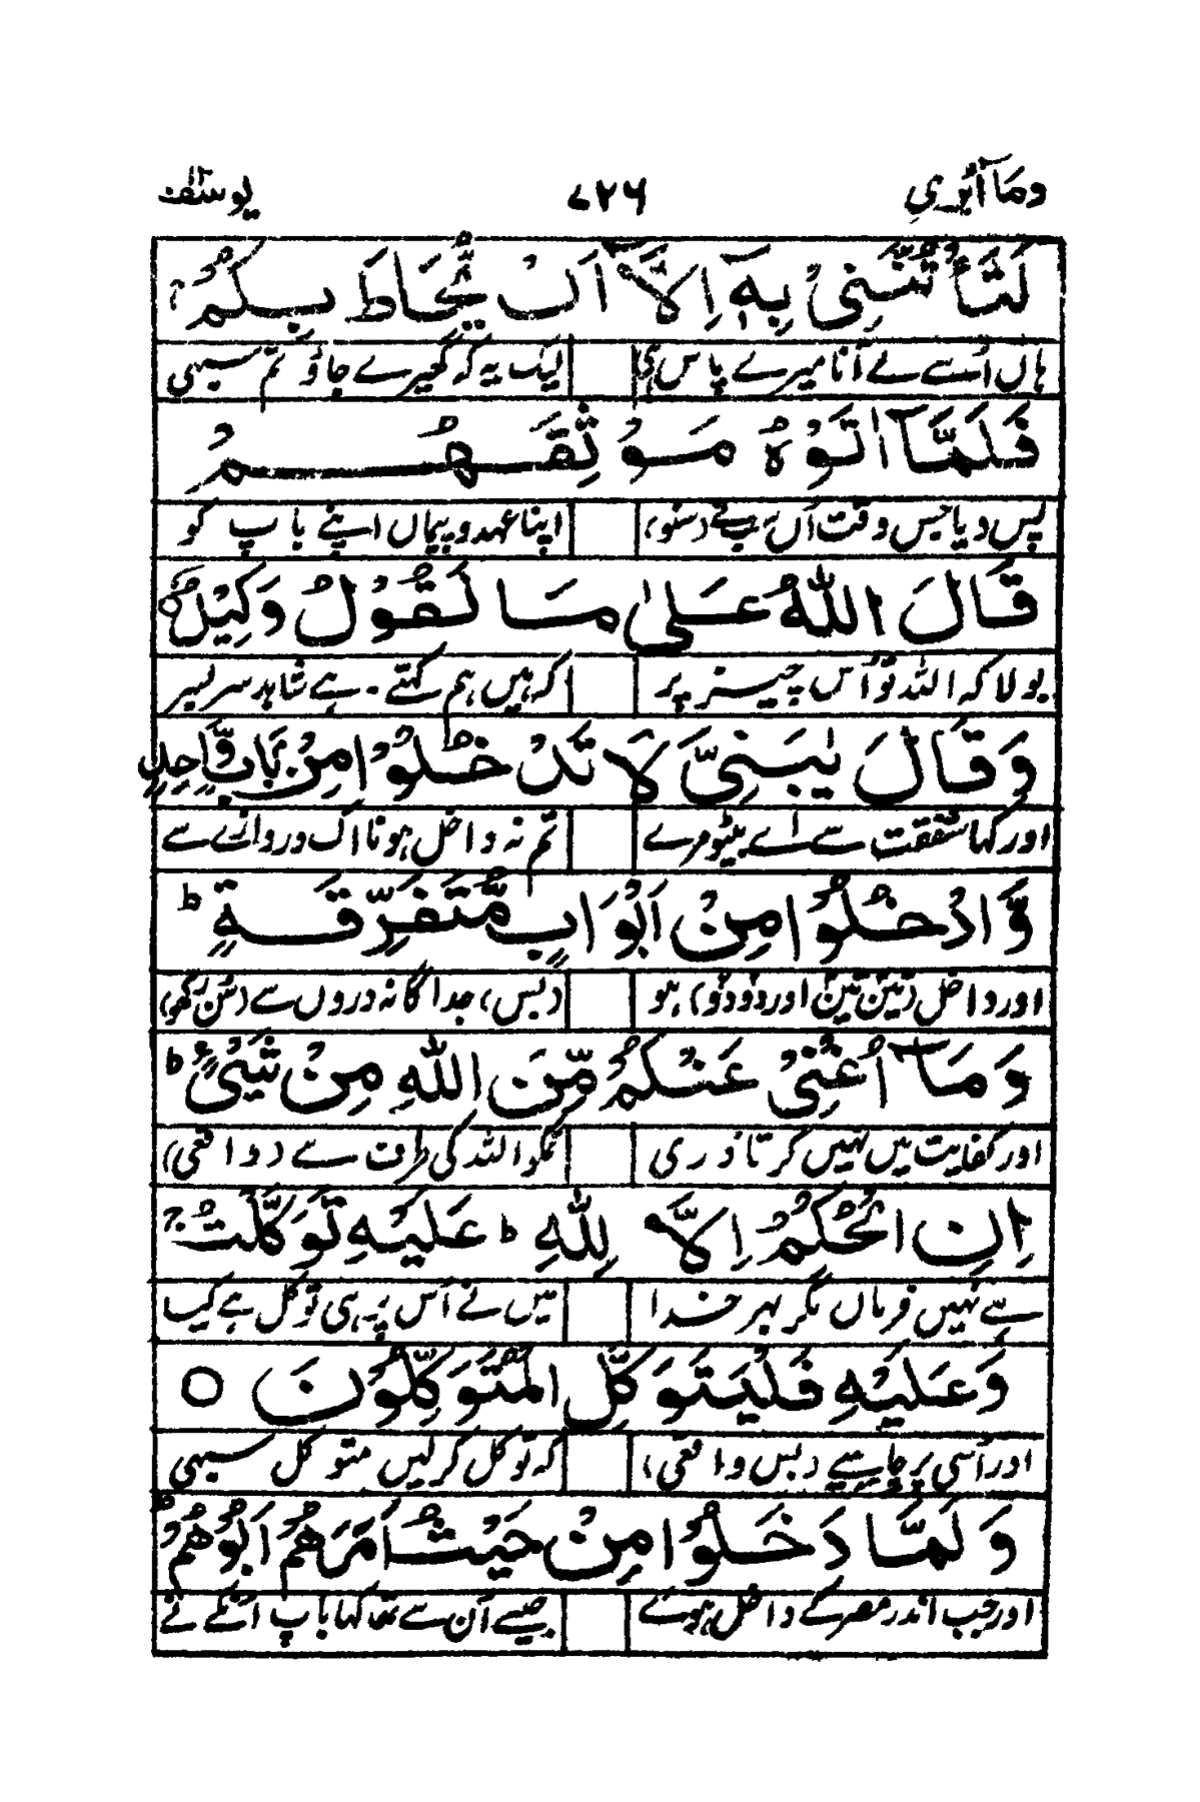 وما ابری ۷۲۶ یوسف
لَتَأْتُنَّنِیْ بِهٖۤ اِلَّاۤ اَنْ یُّحَاطَ بِکُمْ ۚ
ہاں اُسے لے آنا میرے پاس ہی لیک یہ کہ گھیرے جاؤ تم سبھی
فَلَمَّاۤ اٰتَوْهُ مَوْثِقَهُمْ
پس دیا جس وقت اُن سب نے (سنو) اپنا عہد و پیماں اپنے باپ کو
قَالَ اللّٰهُ عَلٰی مَا نَقُوْلُ وَکِیْلٌ ○
بولا کہ اللہ تو اُس چیز پر کہ ہیں ہم کہتے ۔ ہے شاہد سربسر
وَقَالَ یٰبَنِیَّ لَا تَدْخُلُوْا مِنْۢ بَابٍ وَّاحِدٍ
اور کہا شفقت سے اے بیٹو مرے تم نہ داخل ہونا اک دروازے سے
وَّادْخُلُوْا مِنْ اَبْوَابٍ مُّتَفَرِّقَةٍ ؕ
اور داخل (تین تین اور دو دو) ہو (بس) جداگانہ دروں سے (سُن رکھو)
وَمَاۤ اُغْنِیْ عَنْکُمْ مِّنَ اللّٰهِ مِنْ شَیْءٍ ؕ
اور کفایت میں نہیں کرتا ذری تمکو اللہ کی طرف سے (واقعی)
اِنِ الْحُکْمُ اِلَّا لِلّٰهِ ؕ عَلَیْهِ تَوَکَّلْتُ ۚ
ہے نہیں فرماں مگر بہر خدا میں نے اُس پر ہی توکل ہے کیا
وَعَلَیْهِ فَلْیَتَوَکَّلِ الْمُتَوَکِّلُوْنَ ○
اور اُسی پر چاہیے (بس واقعی) کہ توکل کرلیں متوکل سبھی
وَلَمَّا دَخَلُوْا مِنْ حَیْثُ اَمَرَهُمْ اَبُوْهُمْ
اور جب اندر مصر کے داخل ہوئے جیسے اُن سے تھا کہا باپ انکے نے